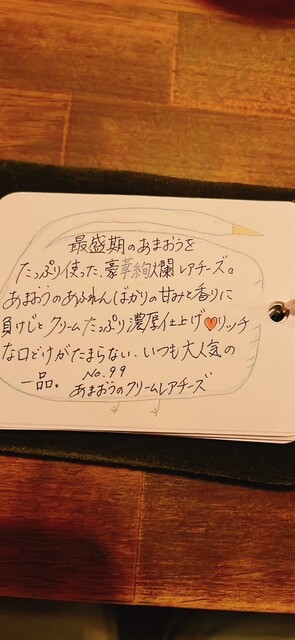 最盛期のあまおうを
たっぷり使った、豪華絢爛レアチーズ。
あまおうのあふれんばかりの甘みと香りに
負けじとクリームたっぷり濃厚仕上げ🧡リッチ
な口どけがたまらない、いつも大人気の
一品。
No.99
あまおうのクリームレアチーズ